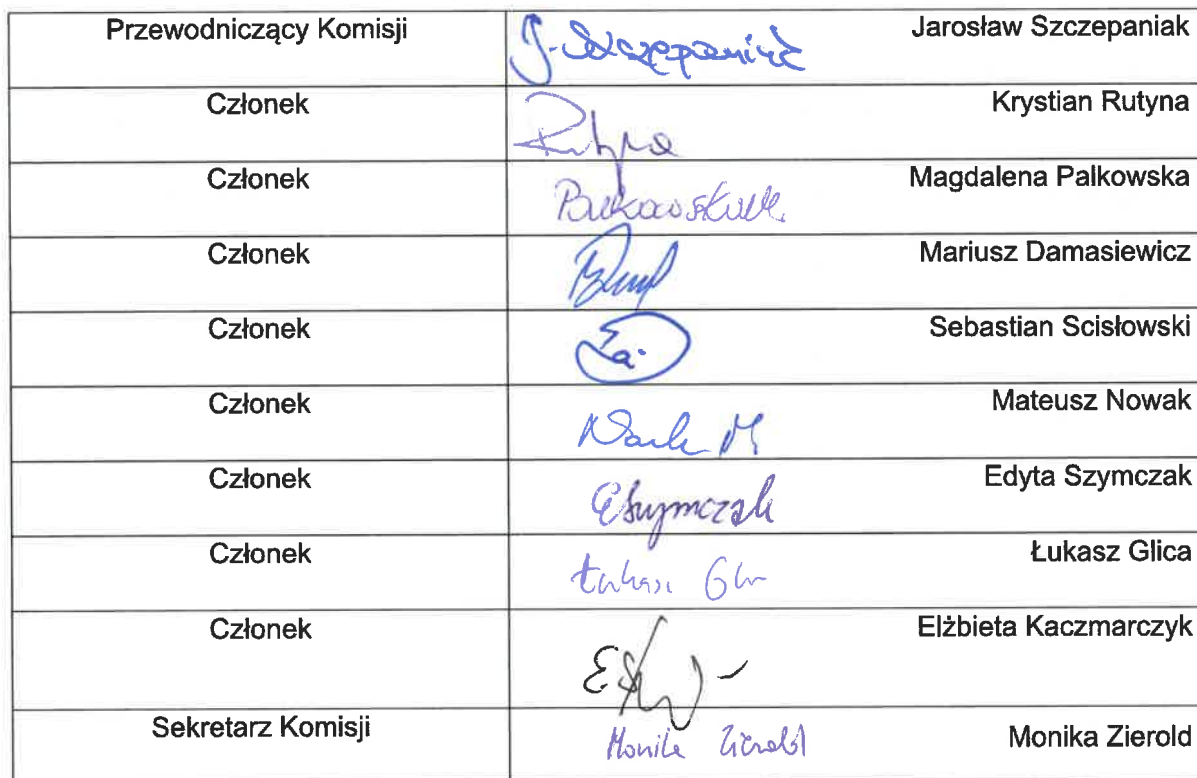 Przewodniczący Komisji J. Szczepaniak Jarosław Szczepaniak
Członek Rutyna Krystian Rutyna
Członek Magdalena Palkowska
Członek Mariusz Damasiewicz
Członek Sebastian Scisłowski
Członek Nowak M Mateusz Nowak
Członek ESzymczak Edyta Szymczak
Członek Łukasz Gl Łukasz Glica
Członek Elżbieta Kaczmarczyk
Sekretarz Komisji Monika Zierold Monika Zierold